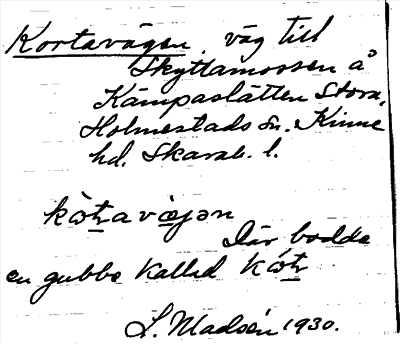 Kortavägen, väg till
Skyttamossen å
Kämpaslätten Stora,
Holmestads sn. Kinne
hd. Skarab. l.
Där bodde
en gubbe kallad
L. Madsén 1930.